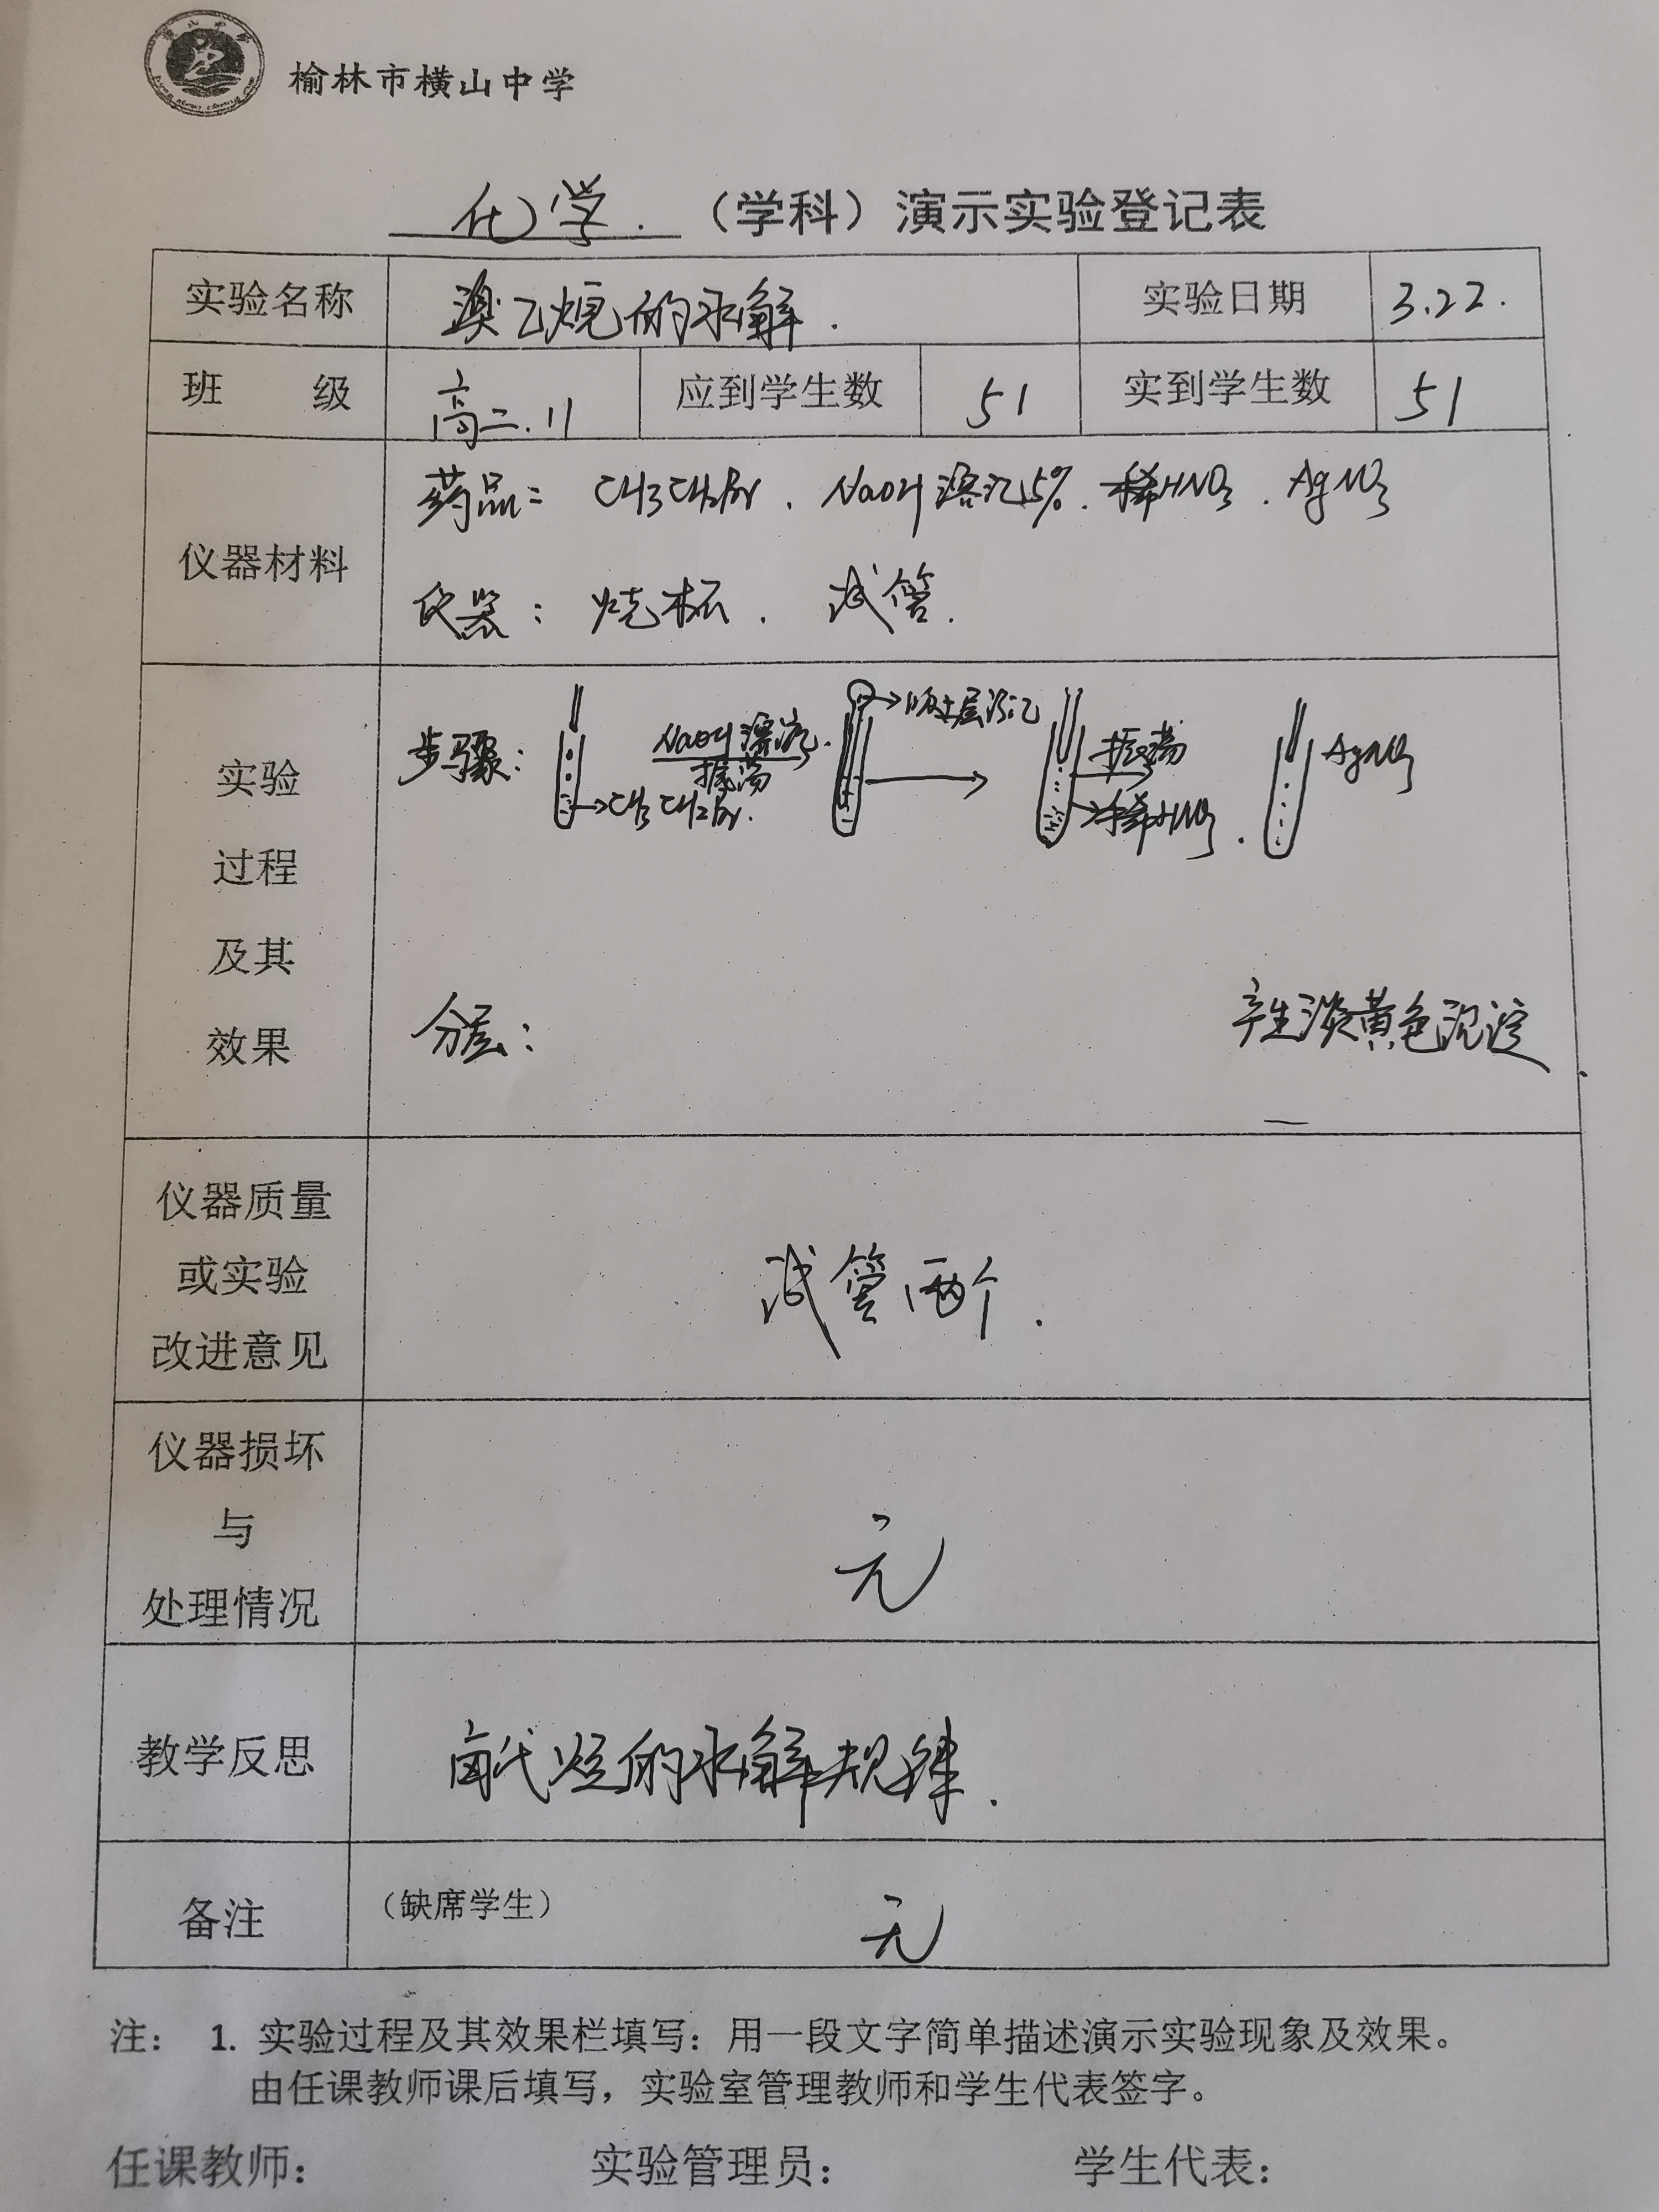 榆林市横山中学
化学.（学科）演示实验登记表
实验名称 溴乙烷的水解. 实验日期 3.22.
班 级 高二.11 应到学生数 51 实到学生数 51
仪器材料
药品: CH3CH2Br、NaOH溶液5%.稀HNO3.AgNO3
仪器: 烧杯. 试管.
实验
过程
及其
效果
步骤:
NaOH溶液.
振荡
→CH3CH2Br.
→吸上层清液
振荡
→稀HNO3.
AgNO3
分层:
产生淡黄色沉淀.
仪器质量
或实验
改进意见
试管两个.
仪器损坏
与
处理情况
无
教学反思
卤代烃的水解规律.
备注
（缺席学生） 无
注: 1. 实验过程及其效果栏填写：用一段文字简单描述演示实验现象及效果。
由任课教师课后填写，实验室管理教师和学生代表签字。
任课教师: 实验管理员: 学生代表: